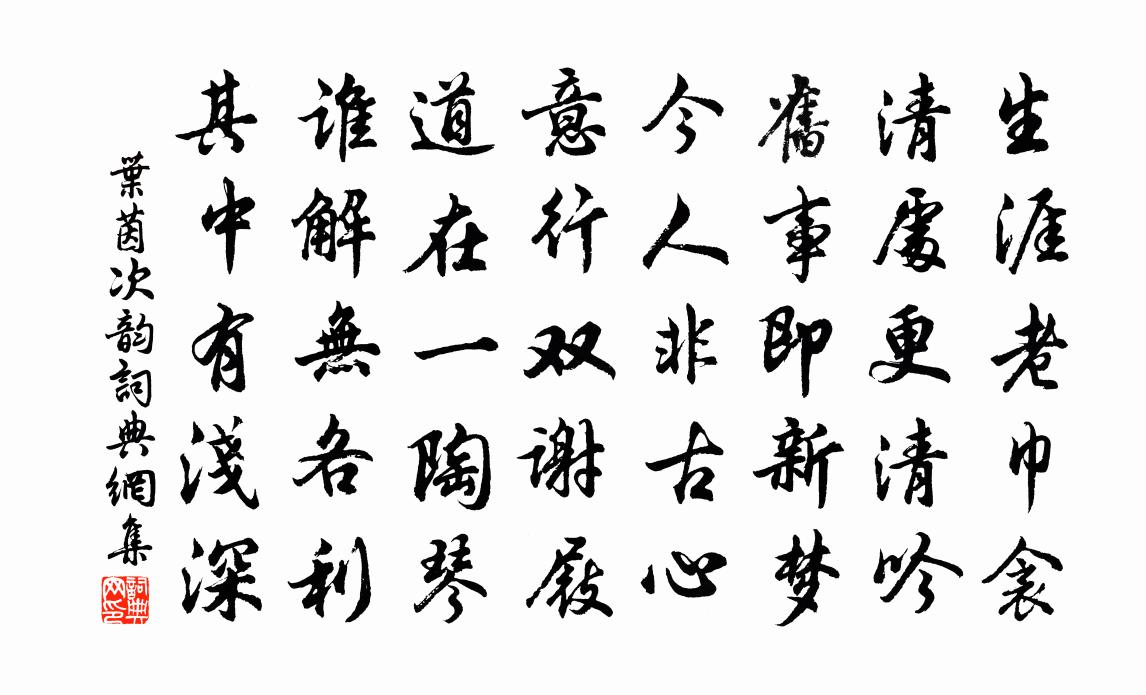 生涯老巾衾
清處更清吟
舊事即新梦
今人非古心
意行双謝屐
道在一陶琴
誰解無各利
其中有淺深
葉茵次韵詞典網集
詞典网印